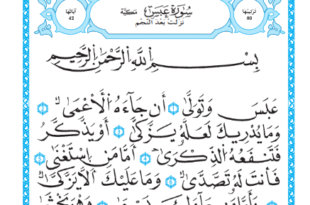 آياتها ٤٢
سُورَةُ عَبَسَ مَكِّيَّة
ترتيبها ٨٠
نزلت بعد النجم
بِسْمِ اللَّهِ الرَّحْمَٰنِ الرَّحِيمِ
عَبَسَ وَتَوَلَّىٰ ۝١ أَن جَآءَهُ ٱلْأَعْمَىٰ ۝٢
وَمَا يُدْرِيكَ لَعَلَّهُۥ يَزَّكَّىٰٓ ۝٣ أَوْ يَذَّكَّرُ
فَتَنفَعَهُ ٱلذِّكْرَىٰٓ ۝٤ أَمَّا مَنِ ٱسْتَغْنَىٰ ۝٥
فَأَنتَ لَهُۥ تَصَدَّىٰ ۝٦ وَمَا عَلَيْكَ أَلَّا يَزَّكَّىٰ ۝٧